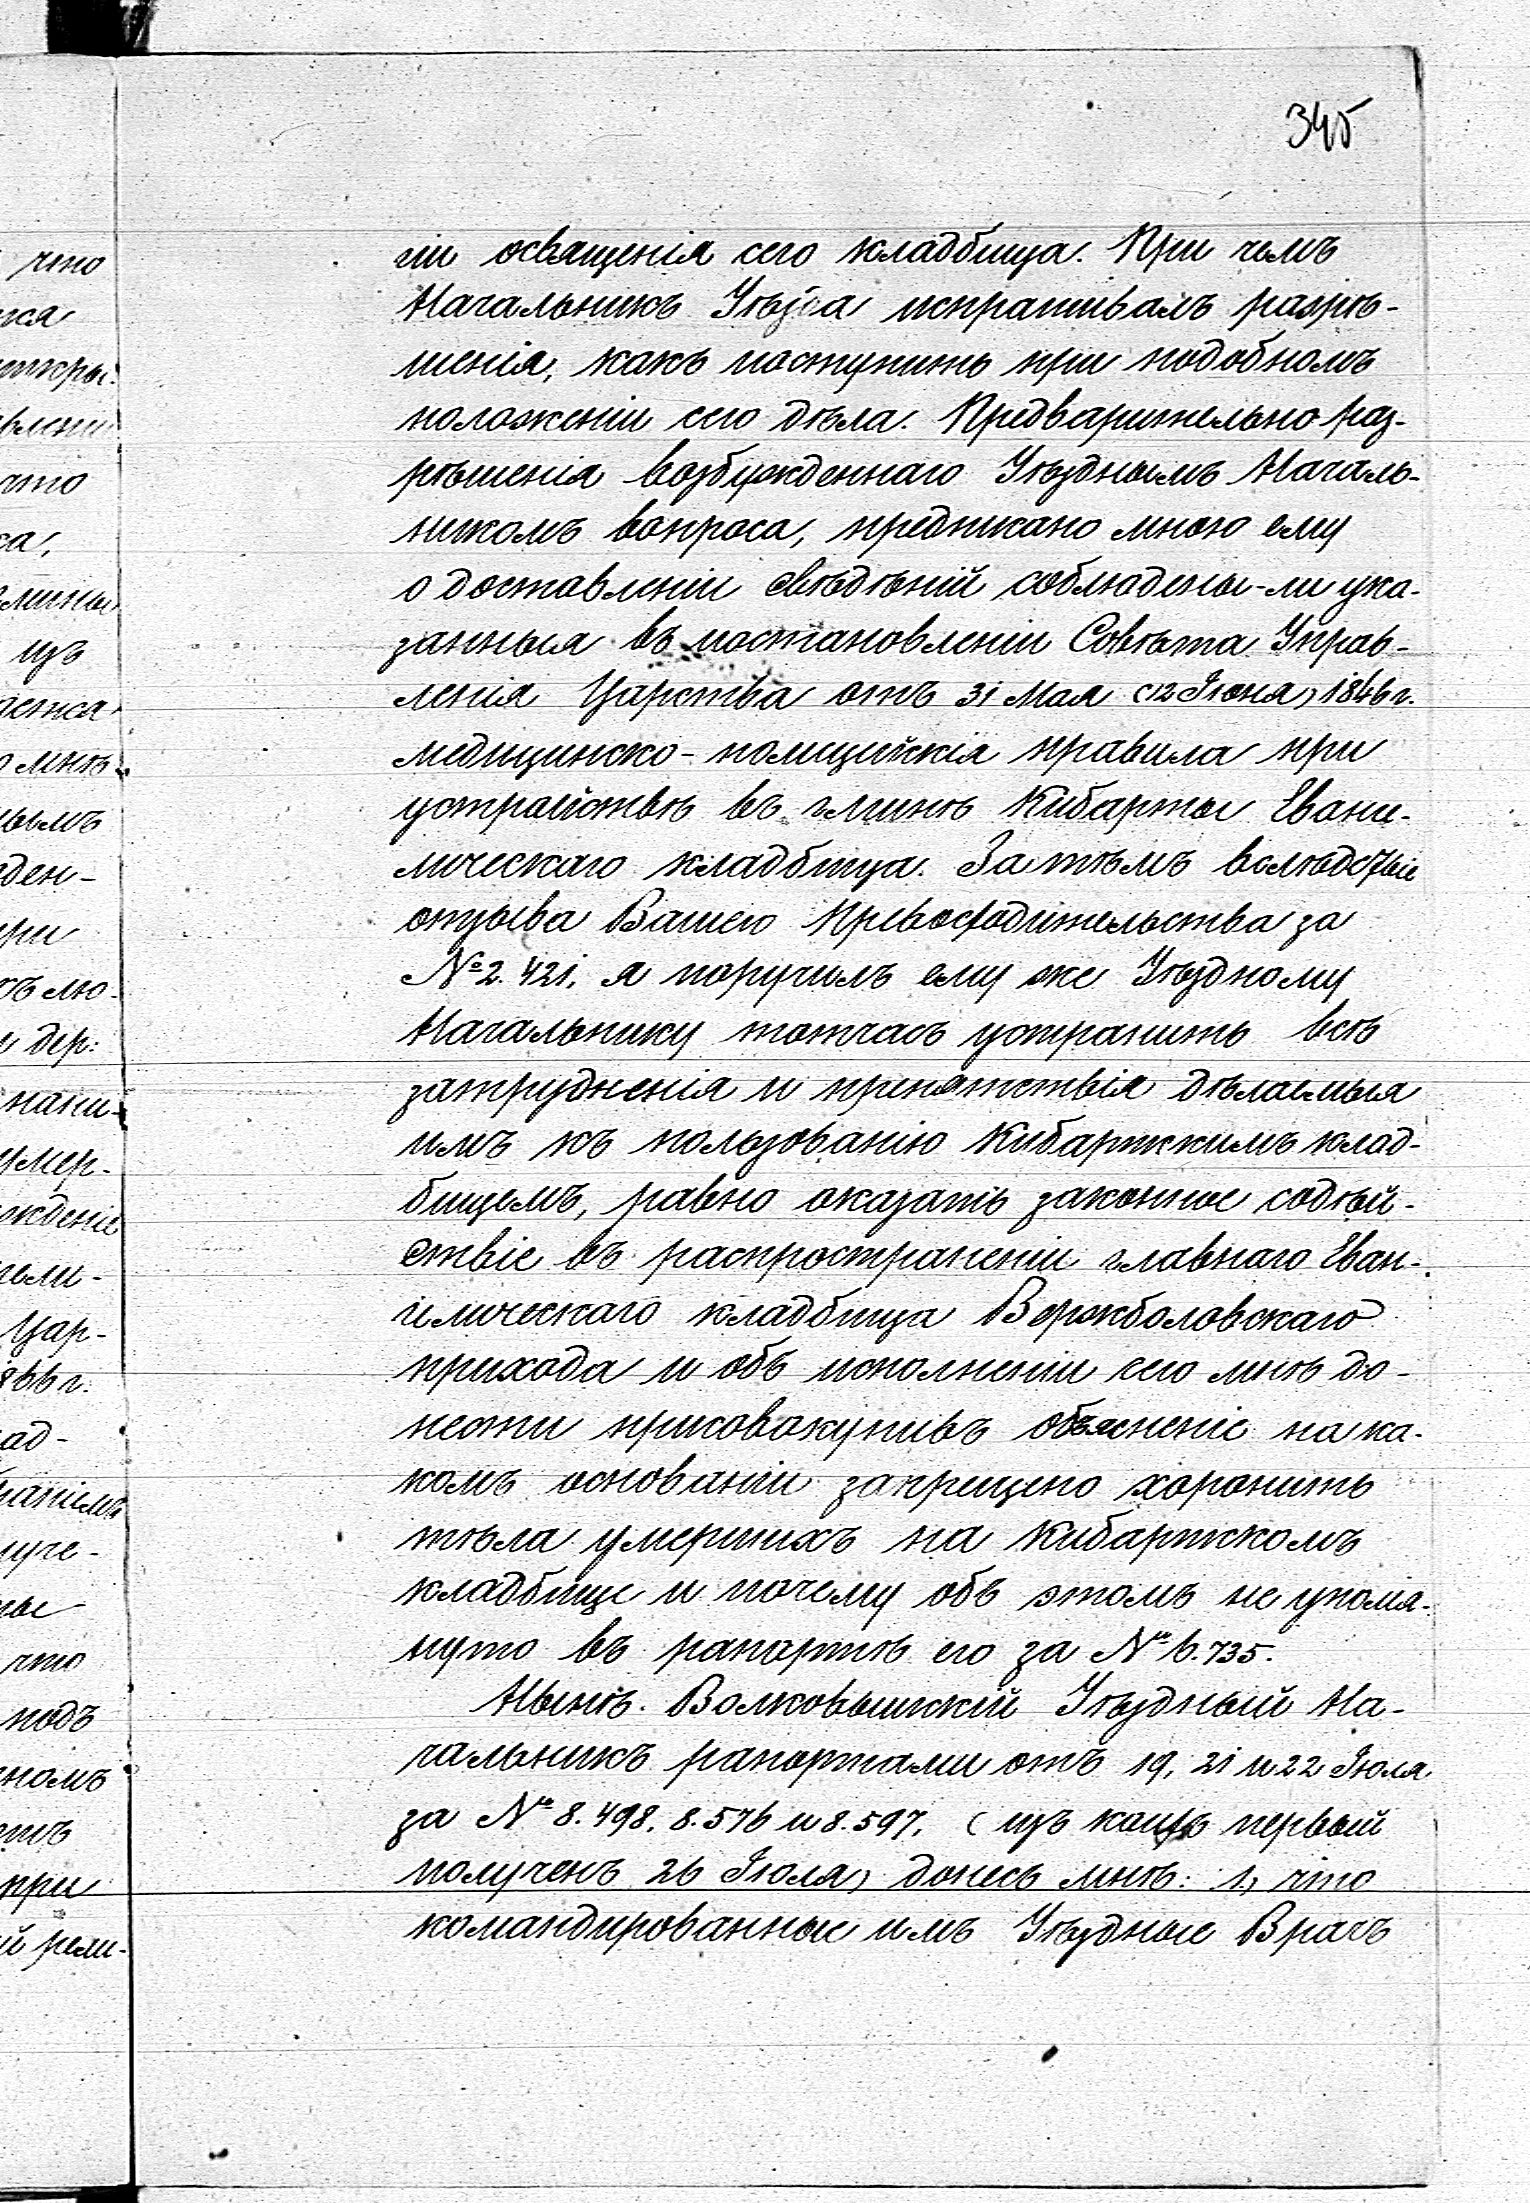 345
гіи освященія сего кладбища. При чемъ
Начальникъ Уѣзда испрашивалъ разрѣ-
шенія, какъ поступить при подобномъ
положеніи сего дѣла. Предварительно раз-
рѣшенія возбужденнаго Уѣзднымъ Началь-
никомъ вопроса, предписано мною ему
о доставленіи свѣдѣній соблюдены-ли ука-
занныя въ постановленіи Совѣта Управ-
ленія Царства отъ 31 Мая (12 Іюня) 1846 г.
медицинско-полицейскія правила при
устройствѣ въ гминѣ Кибарты Еванге-
лическаго кладбища. За тѣмъ вслѣдствіе
отзыва Вашего Превосходительства за
№ 2.421, я поручилъ ему же Уѣздному
Начальнику тотчасъ устранить всѣ
затрудненія и препятствія дѣлаемыя
имъ къ пользованію Кибартскимъ клад-
бищемъ, равно оказать законное содѣй-
ствіе въ распространеніи главнаго Еван-
гелическаго кладбища Вержболовскаго
прихода и объ исполненіи сего мнѣ до-
нести присовокупивъ объясненіе на ка-
комъ основаніи запрещено хоронить
тѣла умершихъ на Кибартскомъ
кладбище и почему объ этомъ не упомя-
нуто въ рапортѣ его за № 6.735.
Нынѣ Волковышскій Уѣздный На-
чальникъ рапортами отъ 19, 21 и 22 Іюля
за № 8.498, 8.576 и 8.597, (изъ коихъ первый
полученъ 26 Іюля) донесъ мнѣ: 1) что
командированные имъ Уѣздные Врачъ
что
что
изъ
при
дер:
Цар-
866 г.
что
подъ
при